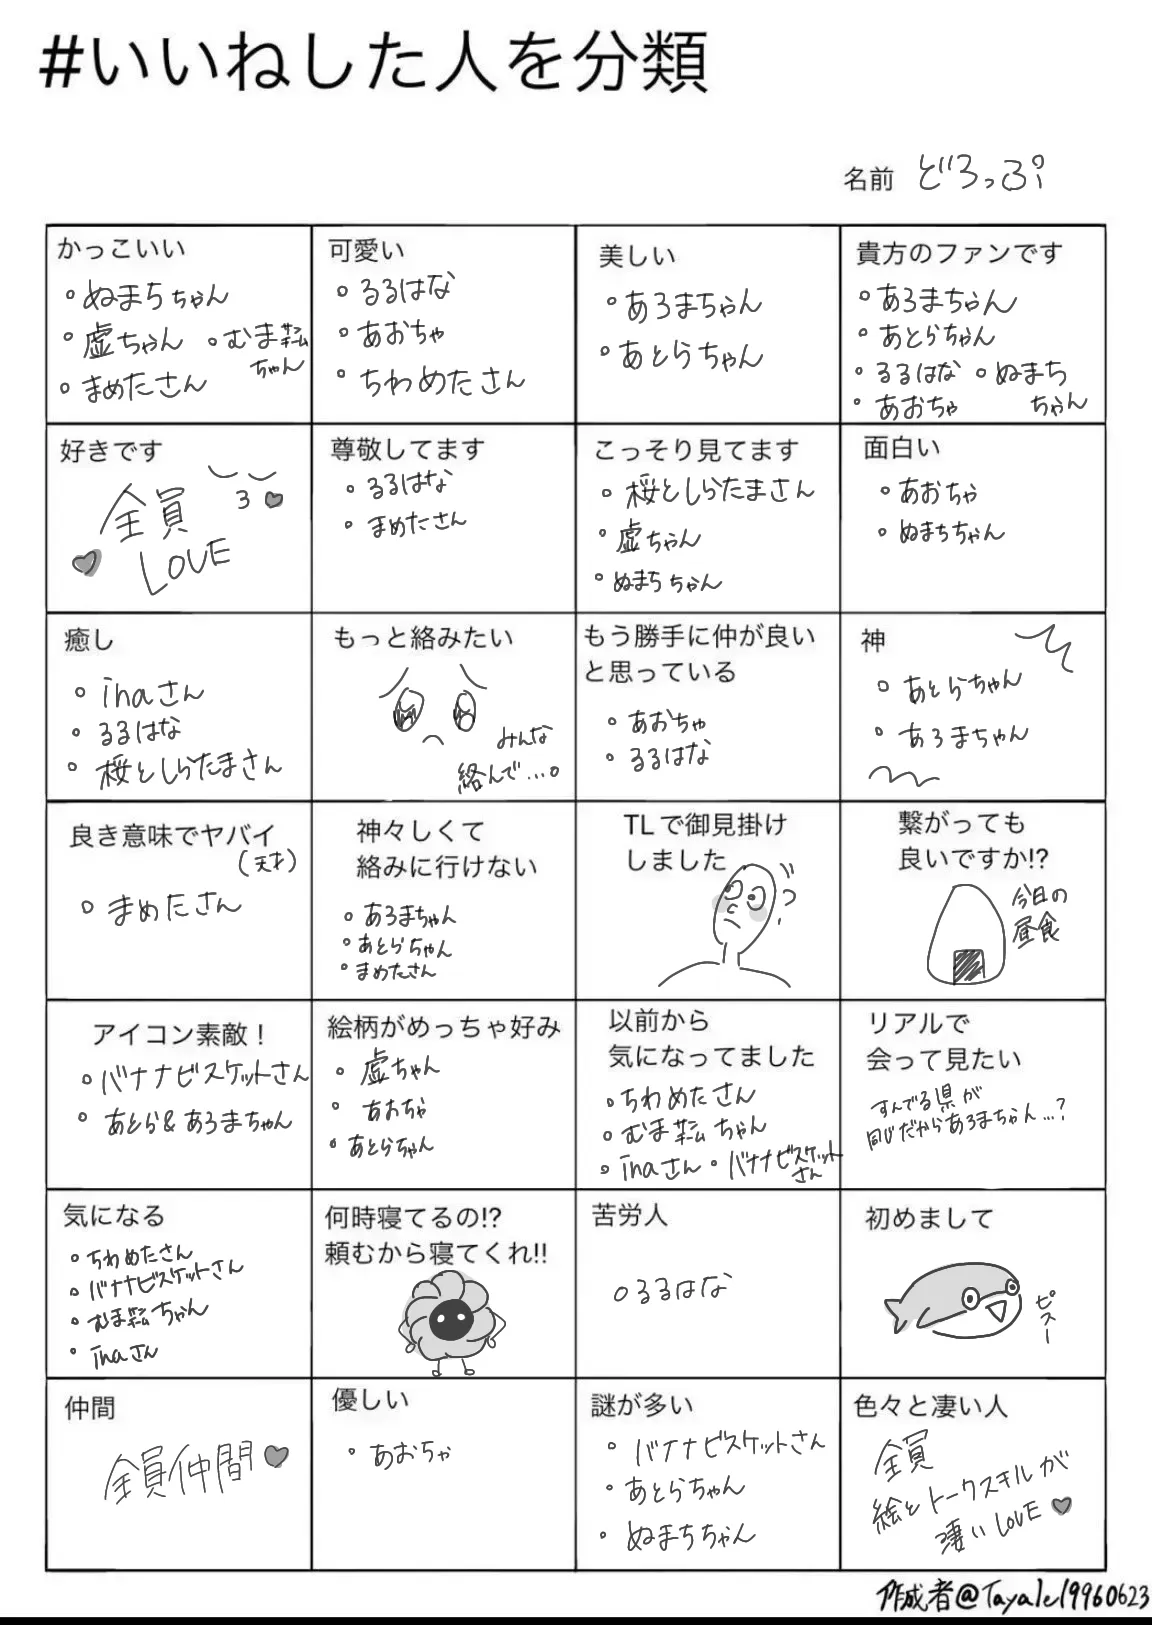 #いいねした人を分類
名前 どろっぷ
かっこいい
。ぬまちちゃん
。虚ちゃん 。むま
ちゃん
。まめたさん
可愛い
。るるはな
。あおちゃ
・ちわめたさん
美しい
。あろまちゃん
。あとらちゃん
貴方のファンです
。あろまちゃん
。あとらちゃん
・るるはな 。ぬまち
・あおちゃ ちゃん
好きです
全員
LOVE
尊敬してます
。るるはな
・まめたさん
こっそり見てます
。桜としらたまさん
・虚ちゃん
・ぬまちちゃん
面白い
。あおちゃ
。ぬまちちゃん
癒し
。inaさん
・るるはな
・桜としらたまさん
もっと絡みたい
みんな
絡んで…。
もう勝手に仲が良い
と思っている
。あおちゃ
。るるはな
神
。あとらちゃん
・あろまちゃん
良き意味でヤバイ
(天才)
。まめたさん
神々しくて
絡みに行けない
。あろまちゃん
・あとらちゃん
・まめたさん
TLで御見掛け
しました
?
繋がっても
良いですか!?
今日の
昼食
アイコン素敵！
。バナナビスケットさん
・あとら&あろまちゃん
絵柄がめっちゃ好み
。虚ちゃん
・あおちゃ
・あとらちゃん
以前から
気になってました
・ちわめたさん
。むま ちゃん
。inaさん ・バナナビスケット
さん
リアルで
会って見たい
すんでる県が
同じだからあろまちゃん…?
気になる
・ちわめたさん
・バナナビスケットさん
・むま ちゃん
・inaさん
何時寝てるの!?
頼むから寝てくれ!!
苦労人
○るるはな
初めまして
ピスー
仲間
全員仲間
優しい
・あおちゃ
謎が多い
。バナナビスケットさん
・あとらちゃん
・ぬまちちゃん
色々と凄い人
全員
絵とトークスキルが
凄い LOVE
作成者@Tayale19960623